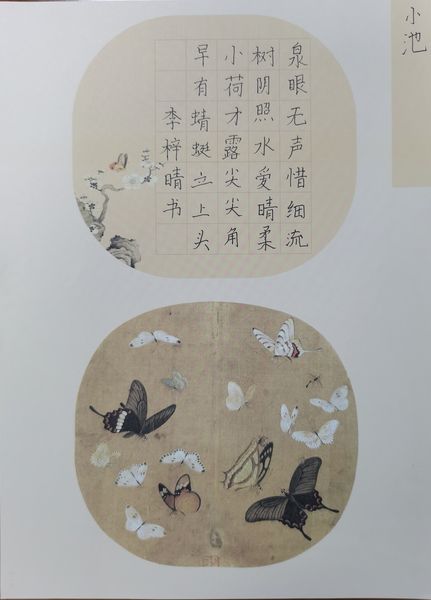 小池
泉眼无声惜细流
树阴照水爱晴柔
小荷才露尖尖角
早有蜻蜓立上头
李梓晴书